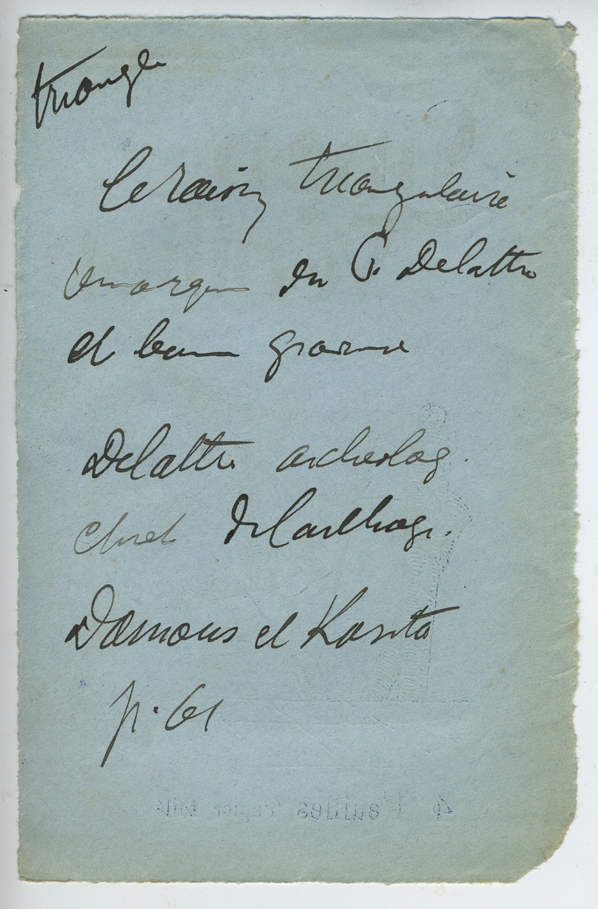 triangle
le raison triangulaire
remarque du P. Delattre
et bonne gravure
Delattre archeolog.
chret de Carthage.
Damous el Karita
p. 61
4 Feuilles Papier toile